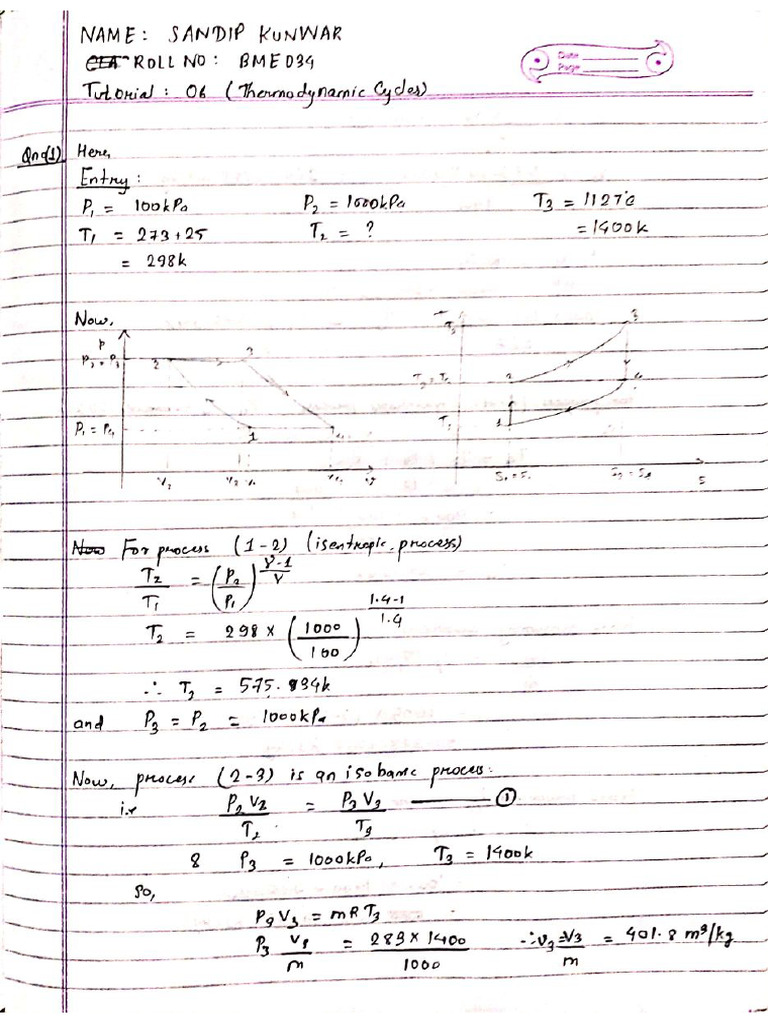 NAME: SANDIP KUNWAR
ROLL NO: BME034
Date
Page
Tutorial: 06 (Thermodynamic Cycles)
Qno(1) Here,
Entry:
P₁ = 100kPa P₂ = 1000kPa T₃ = 1127°c
T₁ = 273+25 T₂ = ? = 1400k
= 298k
Now,
P T₃ 3
P₂ = P₃ 2 3 2 4
P₁ = P₄ 1 T₁ 1
V₂ S
Now For process (1-2) (isentropic process)
T₂/T₁ = (P₂/P₁)^(γ-1/γ)
T₂ = 298 × (1000/100)^(1.4-1/1.4)
∴ T₂ = 575.334k
and P₃ = P₂ = 1000kPa
Now, process (2-3) is an isobaric process.
i.e P₂V₂/T₂ = P₃V₃/T₃ ——— ①
& P₃ = 1000kPa, T₃ = 1400k
so,
P₃V₃ = mRT₃
P₃ V₃/m = 289×1400/1000 ∴ v₃ = V₃/m = 401.8 m³/kg